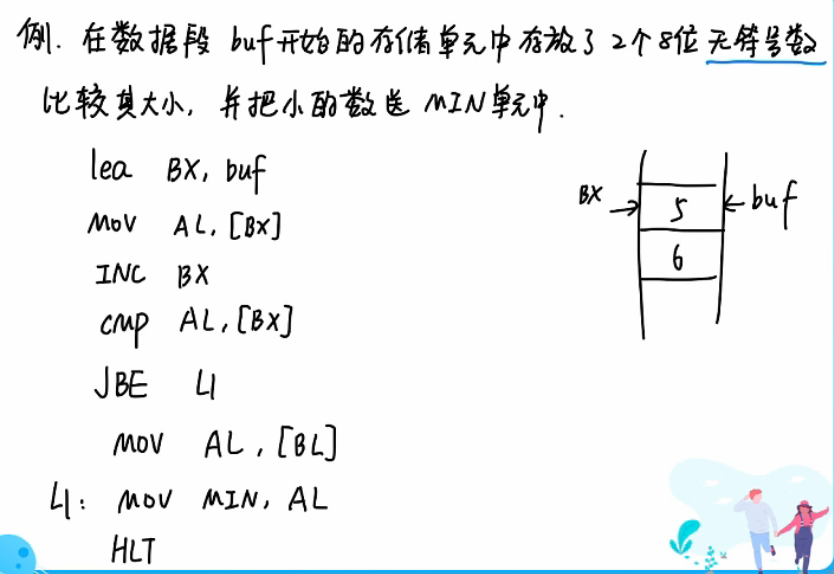 例. 在数据段 buf开始的存储单元中存放了2个8位无符号数
比较其大小, 并把小的数送 MIN单元中.
lea BX, buf
MOV AL, [BX]
INC BX
CMP AL, [BX]
JBE L1
MOV AL, [BL]
L1: MOV MIN, AL
HLT
BX → 5 ← buf
6